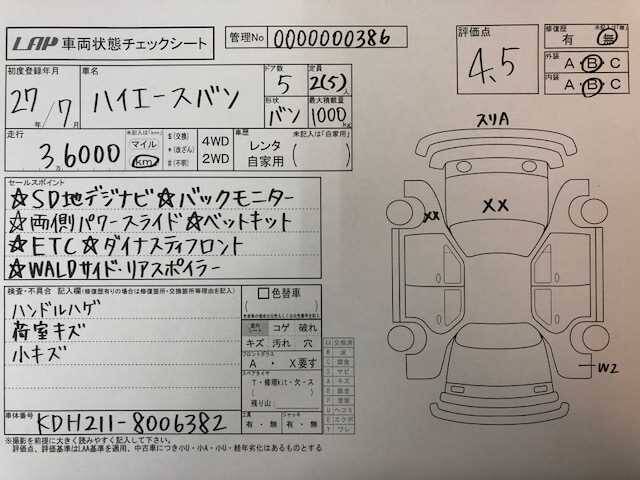 LAP 車両状態チェックシート
管理No 0000000386
評価点 4.5
修復歴 未記入は「無」
有・無
外装 A・B・C
内装 A・B・C
初度登録年月 27年/7月
車名 ハイエースバン
ドア数 5
定員 2(5)人
形状 バン
最大積載量 1000kg
走行 3.6000
万
未記入は「km」
マイル
km
$(交換)
*(改ざん)
#(不明)
4WD
2WD
車歴 未記入は「自家用」
レンタ
自家用( )
スリA
セールスポイント
☆SD地デジナビ☆バックモニター
☆両側パワースライド☆ベットキット
☆ETC☆ダイナスティフロント
☆WALDサイド・リアスポイラー
XX
XX
W2
検査・不具合 記入欄(修復歴有りの場合は修復箇所・交換箇所等理由を記入)
ハンドルハゲ
荷室キズ
小キズ
色替車
( )
コゲ 破れ
キズ 汚れ 穴
フロントガラス
A・X要す
スペアタイヤ
T・修理kit・欠・S
残り山( )
工具
有・無
ジャッキ
有・無
車体番号 KDH211-8006382
※撮影を前提に大きく読みやすく記入して下さい。
評価点、評価基準はLAA基準を適用、中古車につき小U・小A・小U・経年劣化はあるものとする